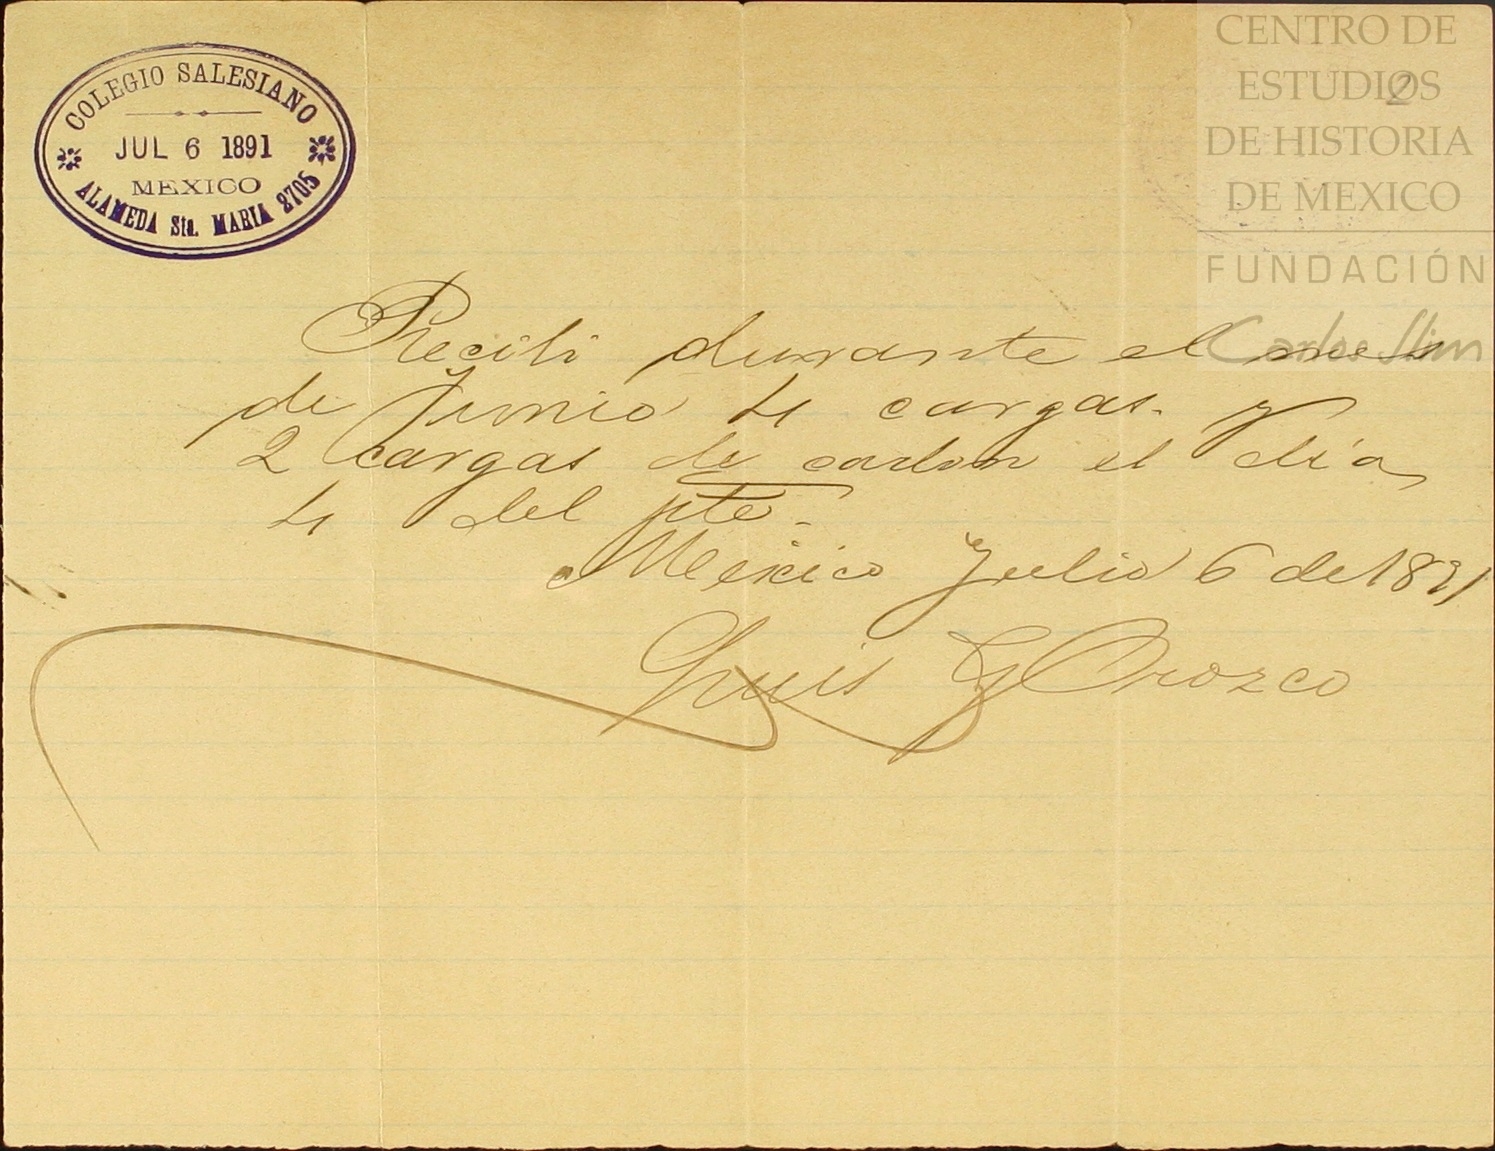 COLEGIO SALESIANO
JUL 6 1891
MEXICO
ALAMEDA Sta. MARIA 2705
CENTRO DE
ESTUDIOS
DE HISTORIA
DE MEXICO
FUNDACIÓN
Carlos Slim
2
Recibi durante el mes
de Junio 4 cargas. y
2 cargas de carbon el día
4 del pte.
Mexico Julio 6 de 1891
Luis G Orozco